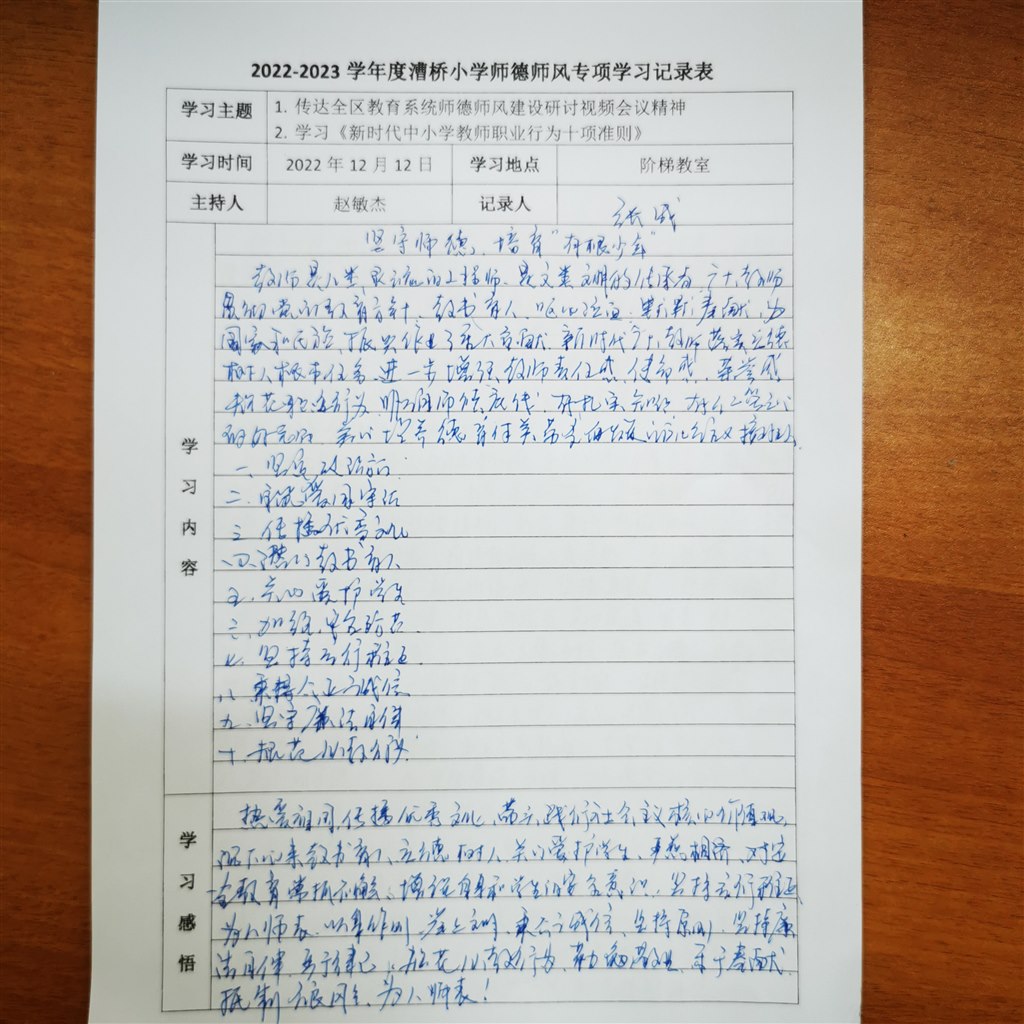 2022-2023 学年度漕桥小学师德师风专项学习记录表
学习主题
1. 传达全区教育系统师德师风建设研讨视频会议精神
2. 学习《新时代中小学教师职业行为十项准则》
学习时间 2022 年 12 月 12 日 学习地点 阶梯教室
主持人 赵敏杰 记录人 张成
学习内容
坚守师德、培育“有根少年”
教师是人类灵魂的工程师、是人类文明的传承者、广大教师
贯彻党的教育方针、教书育人、呕心沥血、默默奉献、为
国家和民族振兴作出了重大贡献、新时代广大教师落实立德
树人根本任务、进一步增强教师责任感、使命感、荣誉感
规范职业行为、明确师德底线、有扎实知识、有仁
培养德智体美劳全面发展的社会主义接班人
一、坚定政治方向
二、自觉爱国守法
三、传播优秀文化
四、潜心教书育人
五、关心爱护学生
加强安全防范
七、坚持言行雅正
八、秉持公平诚信
九、坚守廉洁自律
十、规范从教行为
学习感悟
热爱祖国、传播优秀文化、带头践行社会主义核心价值观、
沉下心来教书育人、立德树人、关心爱护学生、严慈相济、对安
全教育常抓不懈、增强自身和学生的安全意识、坚持言行雅正
为人师表、以身作则、崇上文明、秉公诚信、坚持原则、坚持廉
洁自律、严于律己、规范从教行为、勤勉敬业、乐于奉献、
抵制不良风气、为人师表！